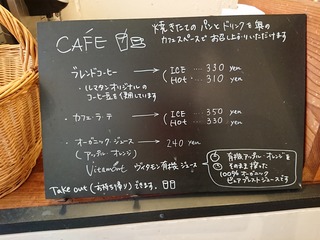 CAFE
焼きたてのパンとドリンクを奥の
カフェスペースでお召し上がりいただけます
ブレンドコーヒー → ICE ‥‥ 330 yen
Hot ‥‥ 310 yen
・ルマタンオリジナルの
コーヒー豆を使用しています
・カフェ・ラテ → ICE ‥‥ 350 yen
Hot ‥‥ 330 yen
・オーガニックジュース → 240 yen
(アップル オレンジ)
Vitamont ヴィタモン有機ジュース
有機アップル・オレンジを
そのまま搾った
100%オーガニック
ピュアプレストジュースです
Take out (お持ち帰り) できます。